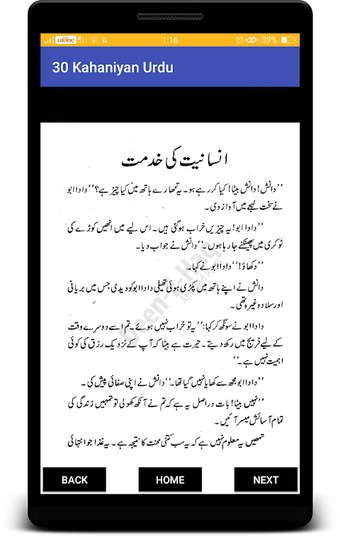 ufone
G
1:16
39%
30 Kahaniyan Urdu
انسانیت کی خدمت
’’دانش! دانش بیٹا! کیا کر رہے ہو۔ یہ تمھارے ہاتھ میں کیا چیز ہے؟‘‘ دادا ابو
نے سخت لہجے میں آواز دی۔
’’دادا ابو! یہ چیزیں خراب ہو گئی ہیں۔ اس لیے میں انھیں کوڑے کی
ٹوکری میں پھینکنے جا رہا ہوں۔‘‘ دانش نے جواب دیا۔
’’دکھاؤ!‘‘ دادا ابو نے کہا۔
دانش نے اپنے ہاتھ میں پکڑی ہوئی تھیلی دادا ابو کو دے دی جس میں بریانی
اور سلاد وغیرہ تھی۔
دادا ابو نے سونگھ کر کہا: ’’یہ تو خراب نہیں ہوئے۔ تم اسے دوسرے وقت
کے لیے فریج میں رکھ دیتے۔ حیرت ہے بیٹا کہ آپ کے نزدیک رزق کی کوئی
اہمیت نہیں ہے۔‘‘
’’دادا ابو مجھ سے کھایا نہیں گیا تھا۔‘‘ دانش نے اپنی صفائی پیش کی۔
’’نہیں بیٹا! بات دراصل یہ ہے کہ تم نے آنکھ کھولی تو تمہیں زندگی کی
تمام آسائش میسر آئیں۔
تمھیں یہ معلوم نہیں ہے کہ یہ سب کتنی محنت کا نتیجہ ہے۔ یہ غذا جو انتہائی
BACK
HOME
NEXT